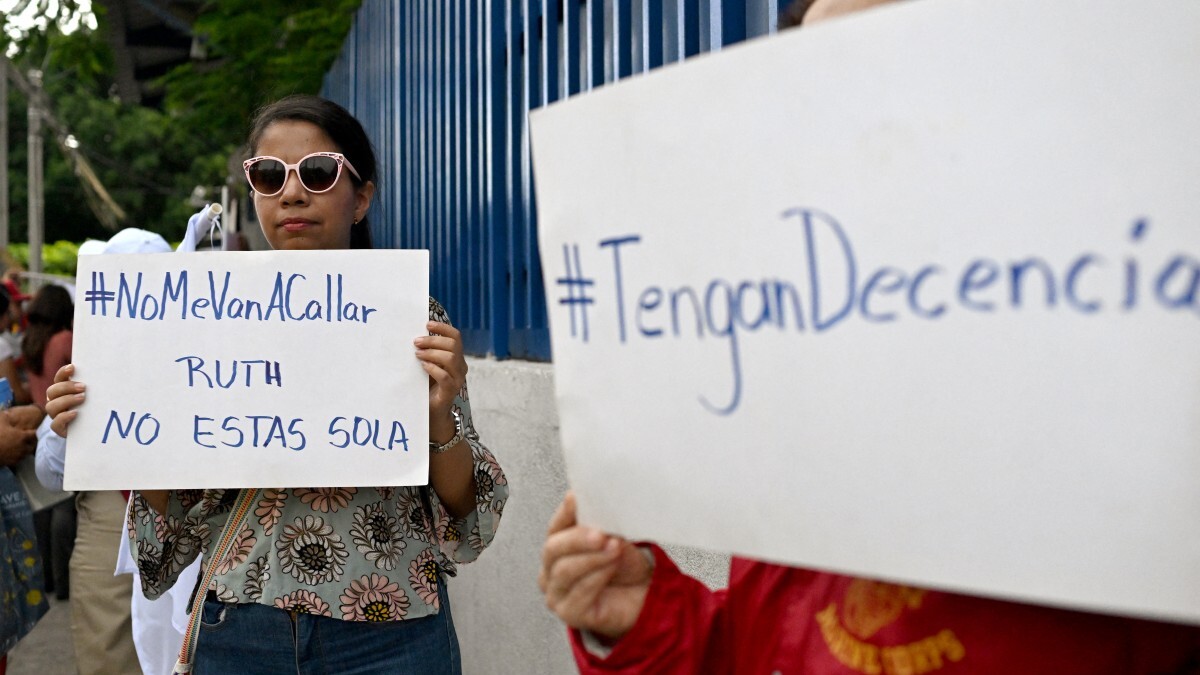 #NoMeVanACallar
RUTH
NO ESTAS SOLA
#TenganDecencia
CORPS